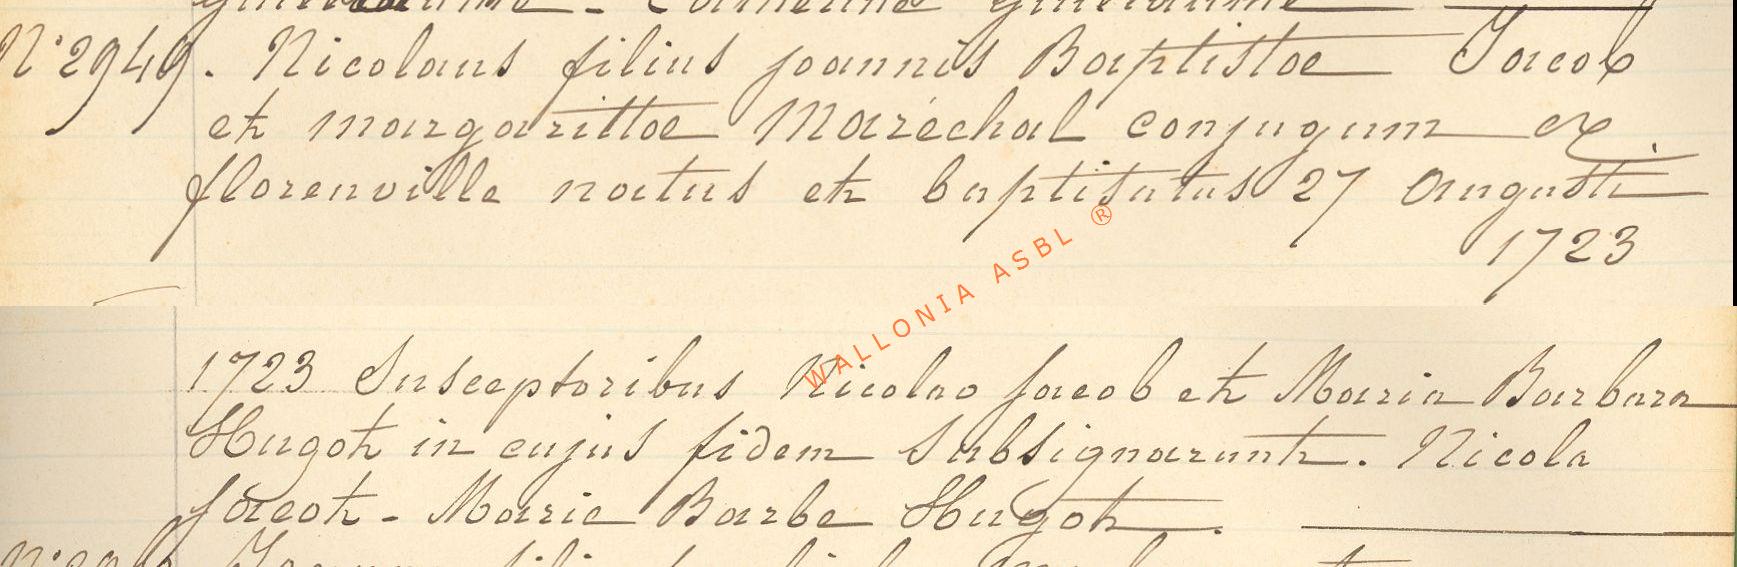 N° 2949. Nicolaus filius joannis Baptistoe Jacob
et margarittoe Maréchal conjugum ex
florenville natus et baptisatus 27 Augusti
1723
WALLONIA ASBL ®
1723 Susceptoribus Nicolao Jacob et Maria Barbara
Hugot in cujus fidem subsignarunt. Nicola
Jacot - Marie Barbe Hugot.